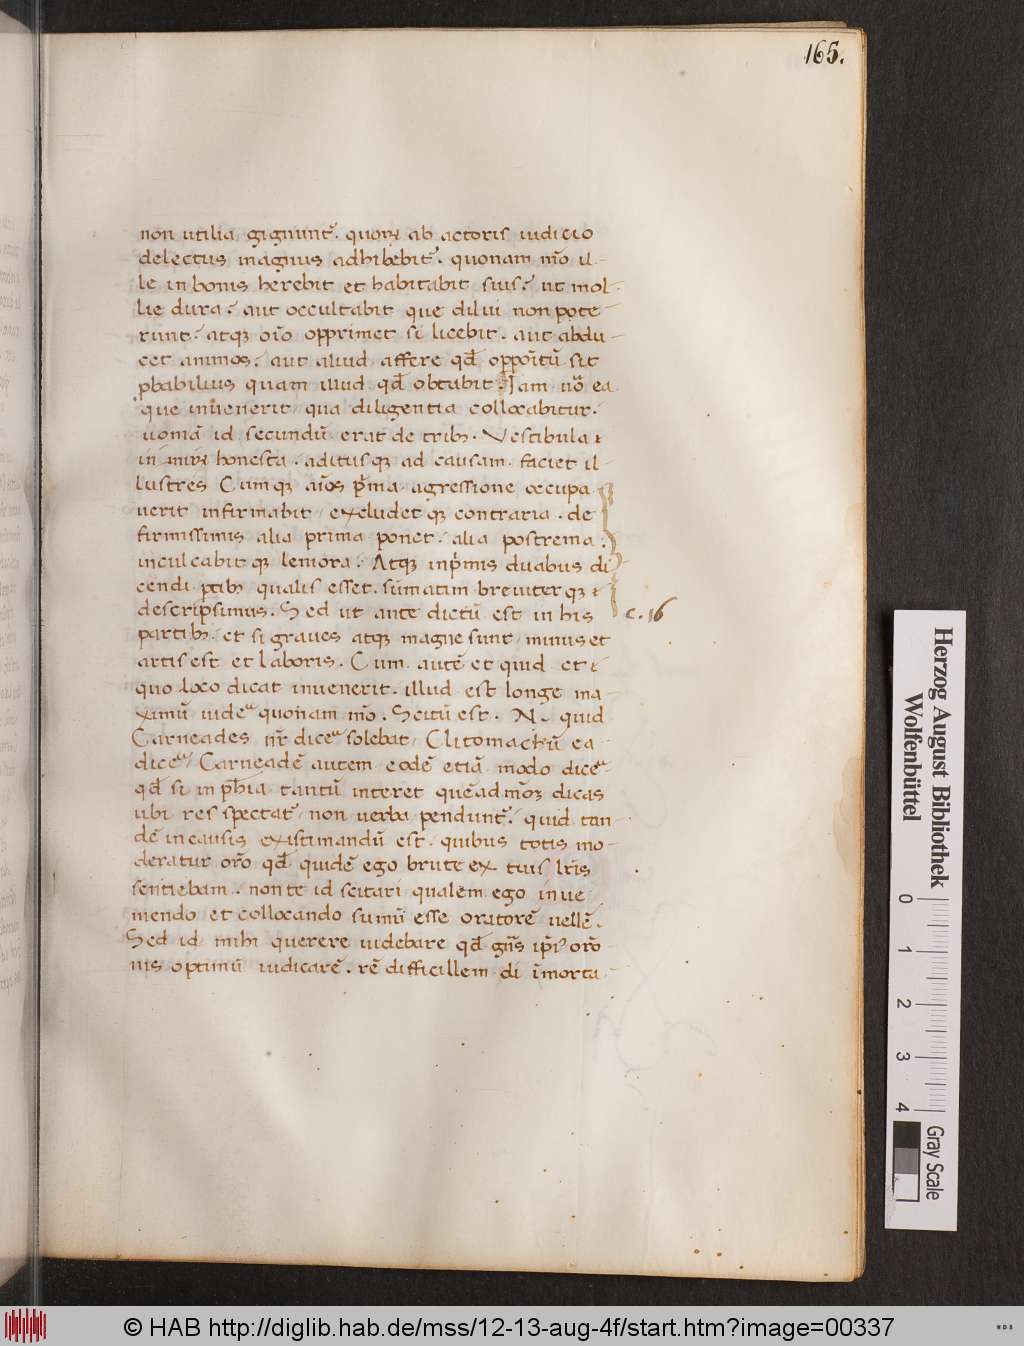 165.
non utilia gignunt̃. quoꝝ ab actoris iudicio
delectus magnus adhibebit̃. quonam mõ il-
le in bonis herebit et habitabit suis? ut mol-
lie dura? aut occultabit que dilui non pote
runt? atqꝫ oĩo opprimet si licebit. aut abdu-
cet animos? aut aliud affere qđ oppoĩtũ sit
ꝓbabilius quam illud qđ obtabit. Iam ũo ea
que invenerit qua diligentia collocabitur.
uomã id secundũ erat de tribꝫ. Vestibula &
in honesta. aditusqꝫ ad causam faciet il-
lustres Cumqꝫ aĩos p̃ma agressione occupa
uerit infirmabit excludetqꝫ contraria. de
firmissimis alia prima ponet. alia postrema.
inculcabitqꝫ leuiora. Atqꝫ inp̃mis duabus di
cendi ꝑtibꝫ qualis esset. sũmatim breuiterqꝫ &
descripsimus. Sed ut ante dictũ est in his
partibꝫ. et si graues atqꝫ magne sunt minus et
artis est et laboris. Cum autẽ et quid et &
quo loco dicat invenerit. illud est longe ma-
ximũ uideᷣ quonam mõ. Scitũ est. N. quid
Carneades nr̃ diceᷣ solebat Clitomachũ ea-
diceᷣ Carneadẽ autem eodẽ etiã modo diceᷣ-
qđ si in ph̃ia tantũ interet quẽadmõꝫ dicas
ubi res spectat̃ non uerba pendunt̃. quid tan
dẽ in causis existimandũ est. quibus totis mo-
deratur or̃o qđ quidẽ ego brute ex tuis lr̃is
sentiebam. non te id scitari qualem ego inue
niendo et collocando sumũ esse oratorẽ uellẽ.
Sed id mihi querere uidebare qđ gñs ip̃i oro-
nis optimũ iudicarẽ. rẽ difficillem di ĩmorta-
c. 16
Herzog August Bibliothek
Wolfenbüttel
0 1 2 3 4
Gray Scale
© HAB http://diglib.hab.de/mss/12-13-aug-4f/start.htm?image=00337